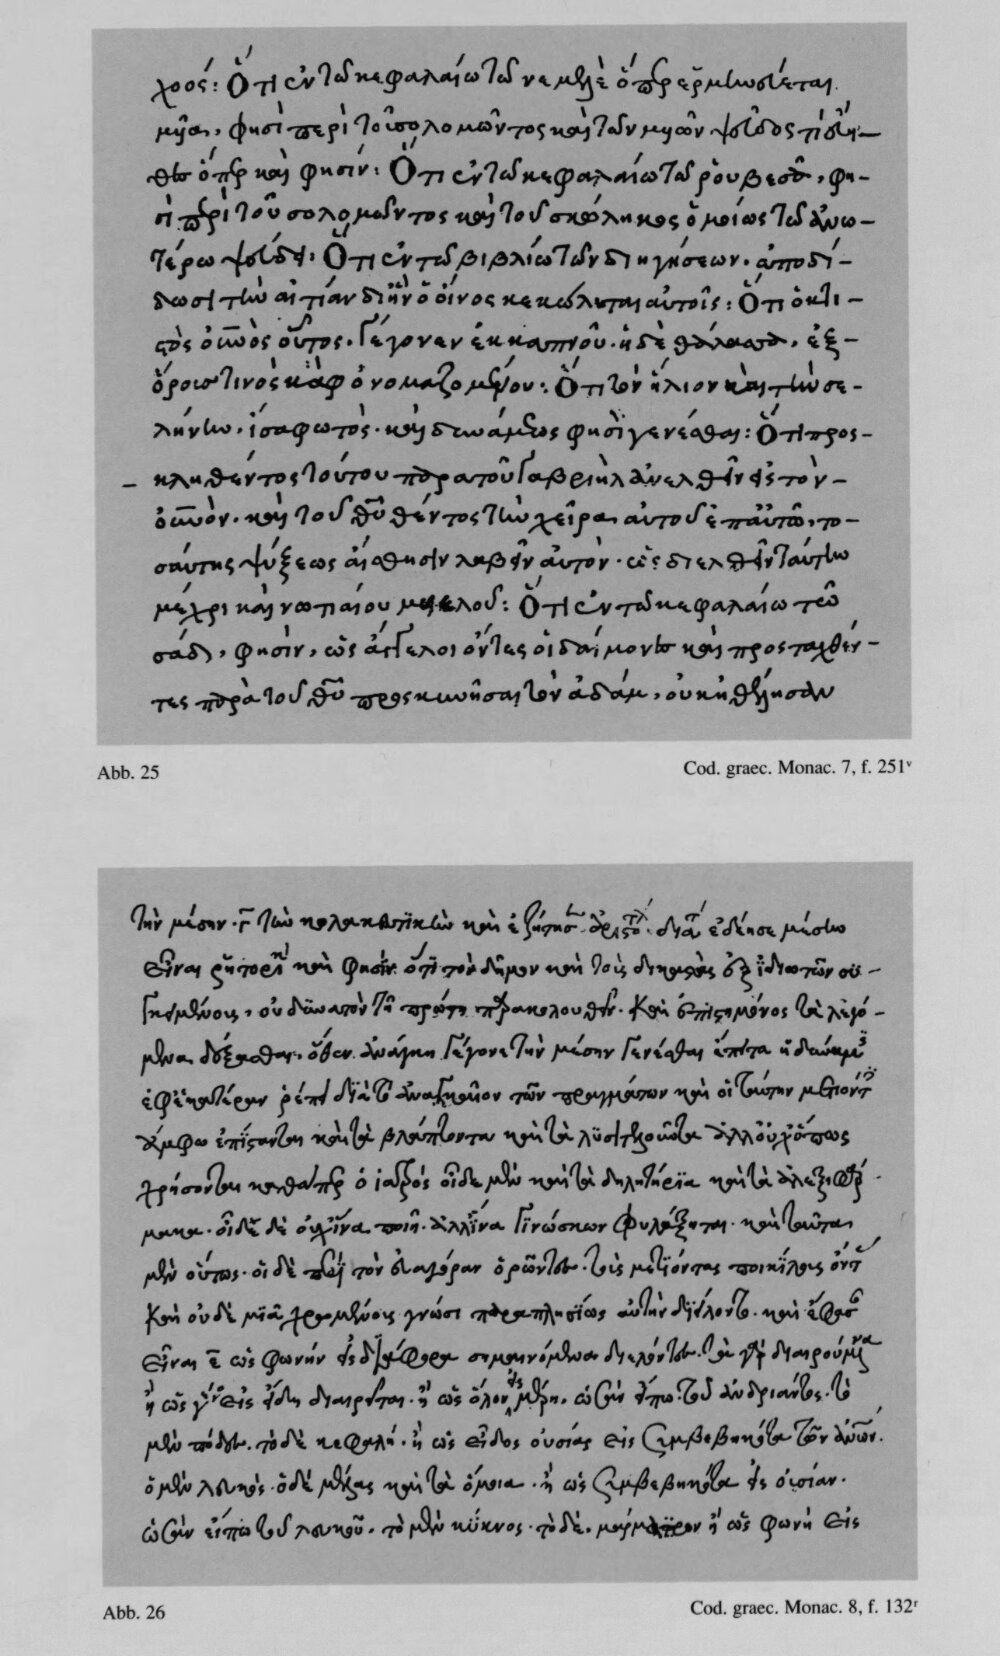 χοός: Ὅτι ἐν τῶ κεφαλαίω τῶ νεμλὲ ὅπερ ἑρμηνεύεται
μυῖα, φησὶ περὶ τοῦ σολομῶντος καὶ τῶν μυιῶν
ὅπερ καὶ φησίν: Ὅτι ἐν τῶ κεφαλαίω τῶ ῥουβεσθ, φη-
σὶ περὶ τοῦ σολομῶντος καὶ τοῦ σκώληκος ὁμοίως τῶ ἀνω-
τέρω ψεύδει: Ὅτι ἐν τῶ βιβλίω τῶν διηγήσεων. ἀποδί-
δωσι τὴν αἰτίαν δι ἣν ὁ οἶνος κεκώλυται αὐτοῖς: Ὅτι ὁ κτι-
στὸς οὐνὸς οὗτος. γέγονεν ἐκ καπνοῦ. ἡ δὲ θάλασσα, ἐξ-
ὄρους τινὸς κὰφ ὀνομαζομένου: Ὅτι τὸν ἥλιον καὶ τὴν σε-
λήνην. ἴσα φωτὸς. καὶ δυνάμεως φησὶ γενέσθαι: Ὅτι προς-
κληθέντος τούτου παρὰ τοῦ Γαβριὴλ ἀνελθεῖν εἰς τὸν-
οὐνόν. καὶ τοῦ θῦ θέντος τὴν χεῖρα αὐτοῦ ἐπ αὐτῶ, το-
σαύτης ψύξεως αἴσθησιν λαβεῖν αὐτὸν. ὡς διελθεῖν ταύτην
μέχρι καὶ νωτιαίου μυελοῦ: Ὅτι ἐν τῶ κεφαλαίω τῶ
σάδ, φησὶν, ὡς ἄγγελοι ὄντες οἱ δαίμονες καὶ προσταχθέν-
τες παρὰ τοῦ θῦ προσκυνῆσαι τὸν ἀδάμ, οὐκ ἠθέλησαν
Abb. 25 Cod. graec. Monac. 7, f. 251ᵛ
τὴν μέσην. τὴν καὶ ἐζήτησεν ἀριστο διατί ἐδέησε μέσην
εἶναι ῥητορικὴ καὶ φησὶν ὅτι τὸν δῆμον καὶ τοὺς δικαστὰς ἐξ ἰδιωτῶν συ-
γκειμένους, οὐ δυνατὸν τῆ πρώτη παρακολουθεῖν. καὶ ἐπιστημόνως τὰ λεγό-
μενα δέξασθαι. ὅθεν ἀνάγκη γέγονε τὴν μέσην γενέσθαι
ἐφ ἑκατέραν ῥέπει διὰ τὸ ἀναγκαῖον τῶν πραγμάτων καὶ οἱ ταύτην μετιόντες
ἄμφω ἐπίστανται καὶ τὰ βλάπτοντα καὶ τὰ λυσιτελοῦντα ἀλλ οὐχ ὅπως
χρήσονται καθάπερ ὁ ἰατρός οἶδε μὲν καὶ τὰ δηλητήρια καὶ τὰ ἀλεξιφάρ
μακα. οἶδε δὲ οὐχ ἵνα ποιῆ. ἀλλ ἵνα γινώσκων φυλάξηται. καὶ ταῦτα
μὲν οὕτως. οἱ δὲ περὶ τὸν διαγόραν ὁρῶντες. τοὺς μετιόντας ποικίλους ὄντας
καὶ οὐδὲ μιᾶ χρωμένους γνώσει παραπλησίως αὐτὴν διεῖλοντο. καὶ ἔφασαν
εἶναι ὡς φωνὴν εἰς διάφορα σημαινόμενα διελόντες. τὰ γὰρ διαιρούμενα
ἢ ὡς γένος εἰς εἴδη διαιρεῖται. ἢ ὡς ὅλον εἰς μέρη. ὡς ἂν εἴπω. τοῦ ἀνδριάντος. τὸ
μὲν πόδες. τὸ δὲ κεφαλή. ἢ ὡς εἶδος οὐσίας εἰς συμβεβηκότα τῶν ἀνῶν.
ὁ μὲν λευκὸς. ὁ δὲ μέλας καὶ τὰ ὅμοια. ἢ ὡς συμβεβηκότα εἰς οὐσίαν.
ὡς ἂν εἴπω τοῦ λευκοῦ. τὸ μὲν κύκνος. τὸ δὲ. μάρμαρον ἢ ὡς φωνὴ εἰς
Abb. 26 Cod. graec. Monac. 8, f. 132ʳ